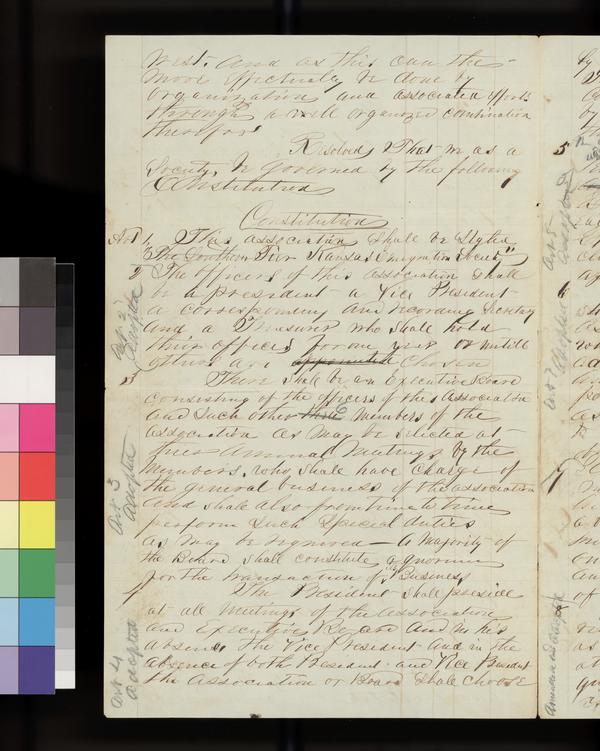 West. And as this can the
more effectually be done by
organization and associated efforts
through a well organized combination
therefore
Resolved, That we as a
Society, be governed by the following
Constitution
Constitution
Art 1, This association shall be styled
"The Southern Tier Kansas Emigration Society"
2 The Officers of this association shall
be a president a Vice President
a corresponding and recording Secretary
and a Treasurer who shall hold
their offices for one year or untill
others are appointed chosen
3 There shall be an Executive Board
consisting of the officers of this Association
and such other three members of the
association as may be selected at
their Annual Meetings by the
members, who shall have charge of
the general business of the association
and shall also from time to time
perform such special duties
as may be required — a majority of
the Board shall constitute a quorum
for the transaction of Business
4 The President shall preside
at all meetings of the association
and Executive Board and in his
absence the Vice President and in the
absence of both President and Vice President
the Association or Board shall choose
Art 2
Adopted
Art 3
Adopted
Art 4
Adopted
by
5
Art 5
6
Art 7
adopted
7